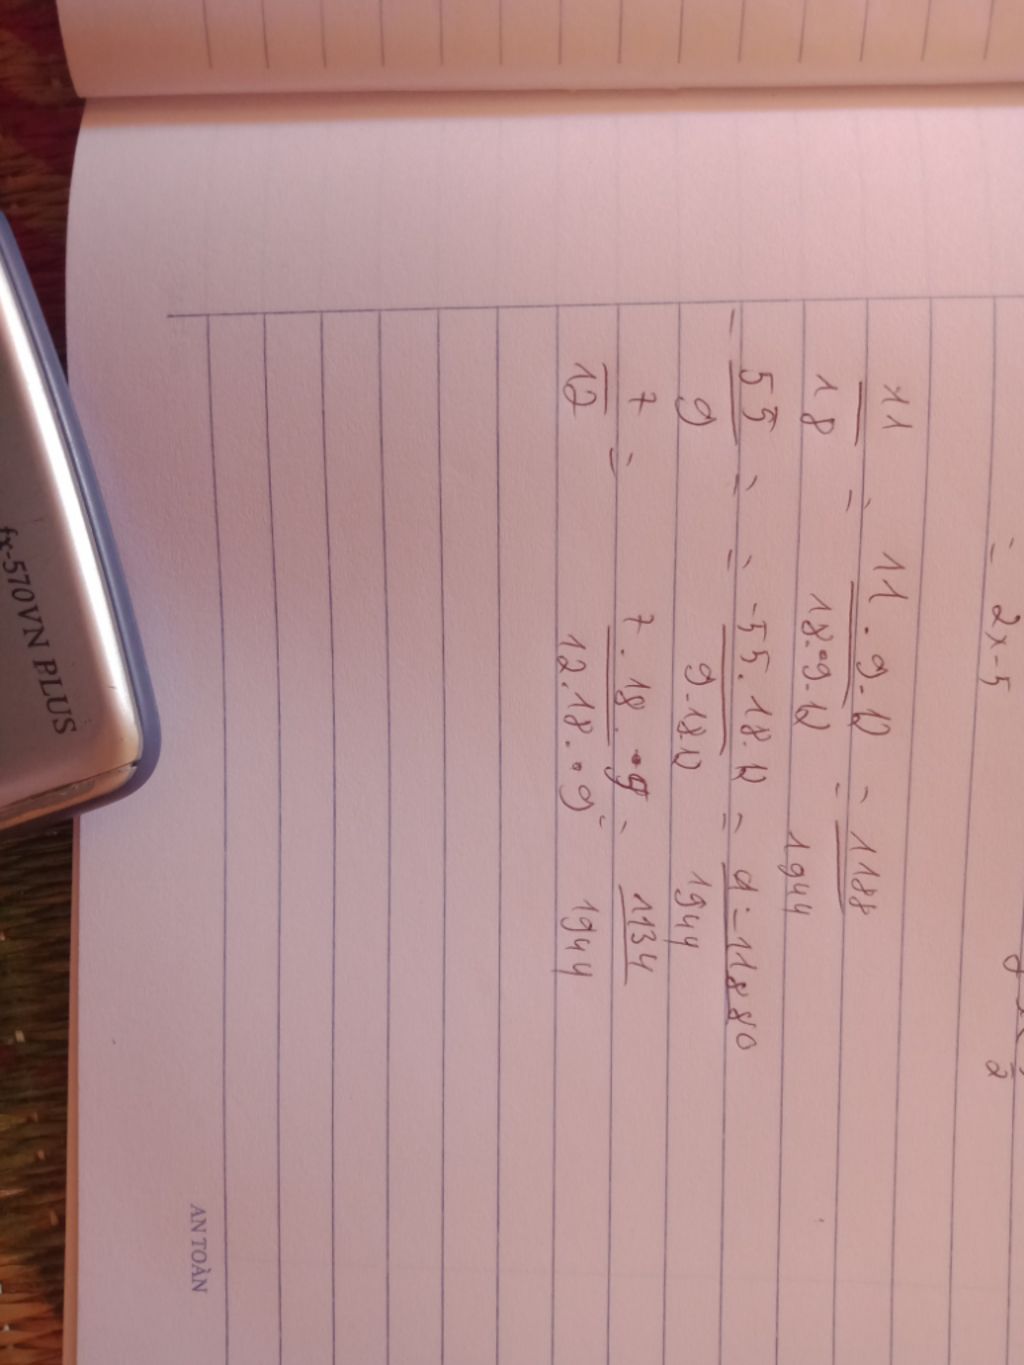 = 2x-5
2
11/18 = 11.9.12/18.9.12 = 1188/1944
-55/9 = = -55.18.12/9.18.12 = -11880/1944
7/12 = 7.18.9/12.18.9 = 1134/1944
fx-570VN PLUS
AN TOÀN